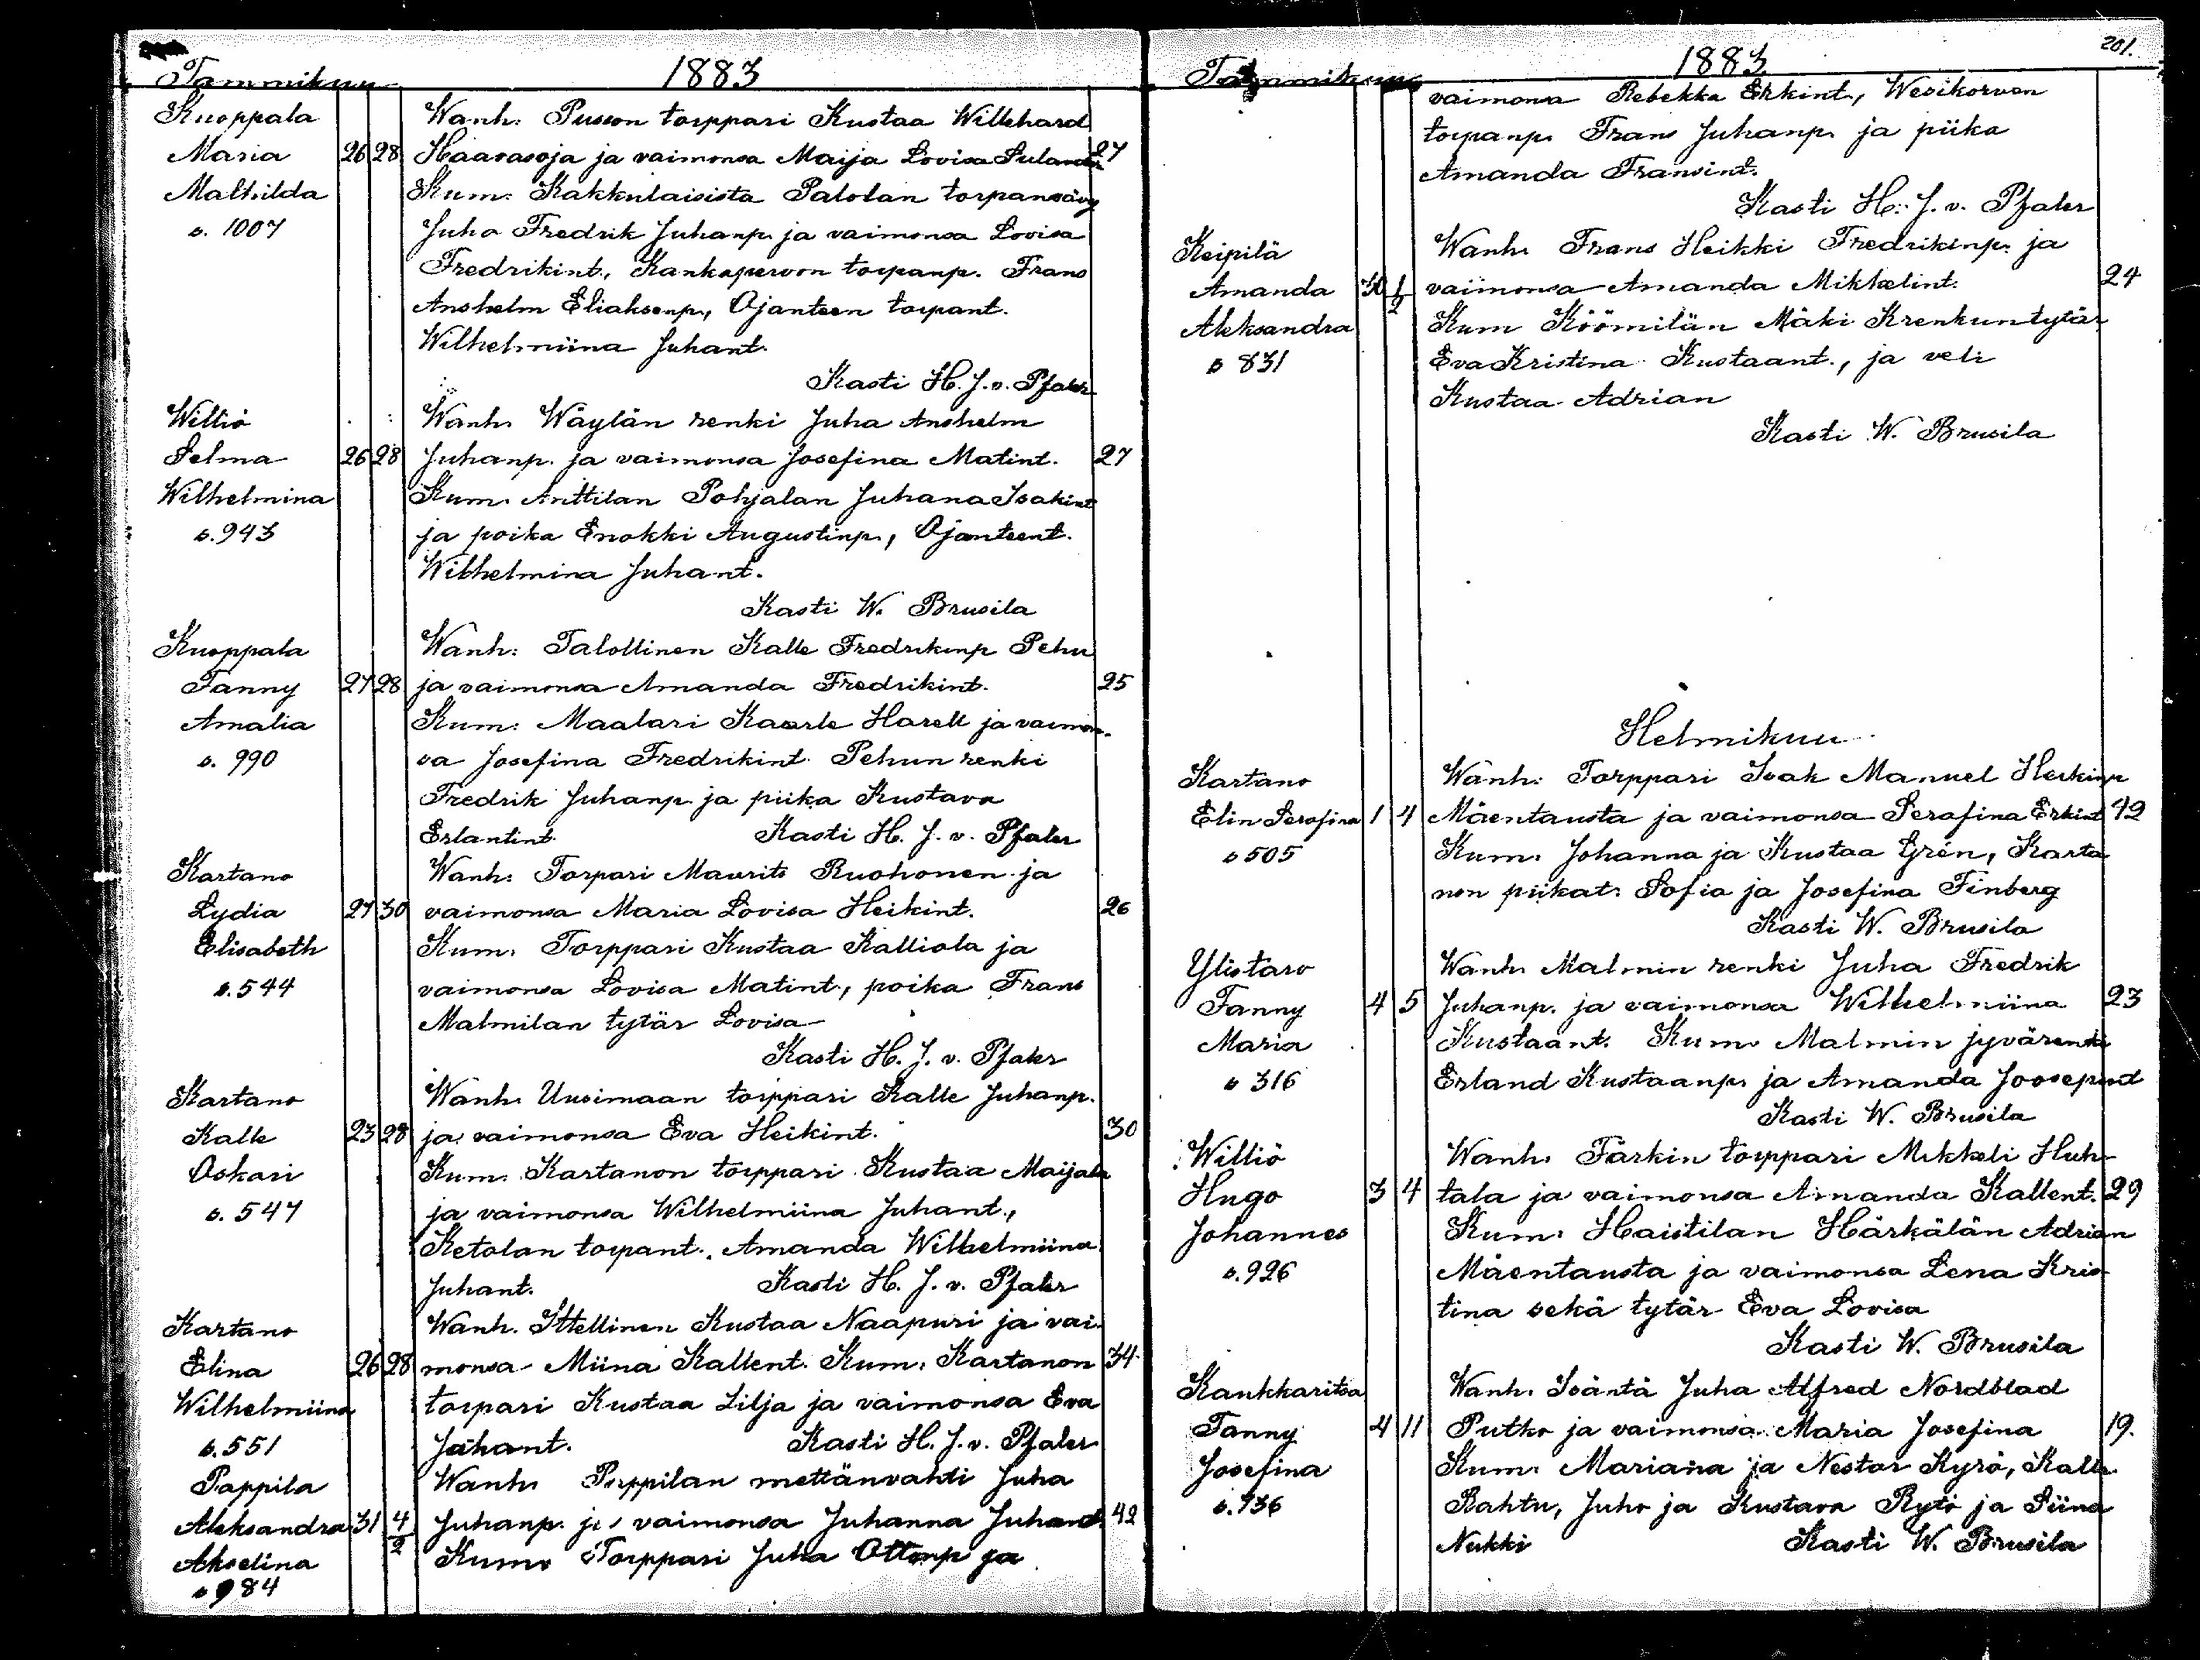 Tammikuu 1883
Kuoppala Wanh: Pusson torppari Kustaa Willehard
Maria 26 28 Haarasoja ja vaimonsa Maija Lovisa Sulander 27
Mathilda Kum. Kakkulaisista Palolan torpanvävy
s. 1007 Juho Fredrik Juhanp. ja vaimonsa Lovisa
Fredrikint., Kankaperon torpanp. Frans
Anshelm Eliaksenp., Ojanteen torpant.
Wilhelmiina Juhant.
Kasti H. J. v. Pfaler
Williö Wanh. Wäylän renki Juha Anshelm
Selma 26 28 Juhanp. ja vaimonsa Josefina Matint. 27
Wilhelmina Kum. Anttilan Pohjalan Juhana Isakint
s. 943 ja poika Enokki Augustinp., Ojanteent.
Wilhelmina Juhant.
Kasti W. Brusila
Kuoppala Wanh: Talollinen Kalle Fredrikinp Pehu
Fanny 27 28 ja vaimonsa Amanda Fredrikint. 25
Amalia Kum: Maalari Kaarle Harell ja vaimon-
s. 990 sa Josefina Fredrikint. Pehun renki
Fredrik Juhanp. ja piika Kustava
Erlantint. Kasti H. J. v. Pfaler
Kartano Wanh: Torpari Maurits Ruohonen ja
Lydia 27 30 vaimonsa Maria Lovisa Heikint. 26
Elisabeth Kum. Torppari Kustaa Kalliola ja
s. 544 vaimonsa Lovisa Matint., poika Frans
Malmilan tytär Lovisa
Kasti H. J. v. Pfaler
Kartano Wanh. Uusimaan torppari Kalle Juhanp.
Kalle 23 28 ja vaimonsa Eva Heikint. 30
Oskari Kum. Kartanon torppari Kustaa Maijala
s. 547 ja vaimonsa Wilhelmiina Juhant.,
Ketolan torpant. Amanda Wilhelmiina
Juhant. Kasti H. J. v. Pfaler
Kartano Wanh. Ittellinen Kustaa Naapuri ja vai-
Elina 26 28 monsa Miina Kallent. Kum. Kartanon 34
Wilhelmiina torpari Kustaa Lilja ja vaimonsa Eva
s. 551 Juhant. Kasti H. J. v. Pfaler
Pappila Wanh. Pappilan mettänvahti Juha
Aleksandra 31 4/2 Juhanp. ja vaimonsa Juhanna Juhant. 42
Akselina Kum. Torppari Juha Ottonp ja
s 984
201.
Tammikuu 1883
vaimonsa Rebekka Erkint., Wesikorvan
torpanp. Frans Juhanp. ja piika
Amanda Fransint.
Kasti H. J. v. Pfaler
Keipilä Wanh. Frans Heikki Fredrikinp. ja
Amanda 30 vaimonsa Amanda Mikkelint. 24
Aleksandra Kum Köömilän Mäki Krenkun tytär
s 831 Eva Kristina Kustaant., ja veli
Kustaa Adrian
Kasti W. Brusila
Helmikuu
Kartano Wanh: Torppari Isak Manuel Heikinp
Elin Serafina 1 4 Mäentausta ja vaimonsa Serafina Erkint 42
s 505 Kum. Johanna ja Kustaa Grén, Karta
non piikat: Sofia ja Josefina Finberg
Kasti W. Brusila
Ylistaro Wanh. Malmin renki Juha Fredrik
Fanny 4 5 Juhanp. ja vaimonsa Wilhelmiina 23
Maria Kustaant. Kum. Malmin jyvärenki
s 316 Erland Kustaanp. ja Amanda Joosepint
Kasti W. Brusila
Williö Wanh. Färkin torppari Mikkeli Huh-
Hugo 3 4 tala ja vaimonsa Amanda Kallent. 29
Johannes Kum. Haistilan Härkälän Adrian
s. 926 Mäentausta ja vaimonsa Lena Kris-
tina sekä tytär Eva Lovisa
Kasti W. Brusila
Kankkaritsa Wanh. Isäntä Juha Alfred Nordblad
Fanny 4 11 Putko ja vaimonsa Maria Josefina 19.
Josefina Kum. Mariana ja Nestor Kyrö, Kalle
s. 736 Rahtu, Juho ja Kustava Rytö ja Siina
Nukki Kasti W. Brusila